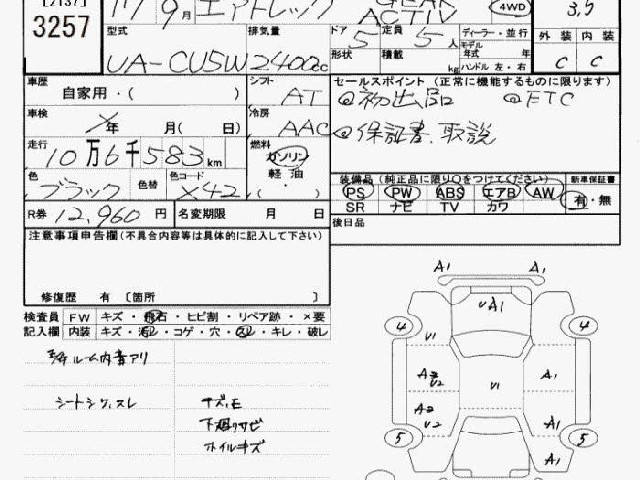 [7137]
3257
17 9月 エアトレック
ACTIV 4WD
3,5
型式 排気量 ドア 定員 ディーラー・並行 外装 内装
形状 積載 5 5人 モデル年式 年
UA-CU5W 2400cc kg ハンドル 左・右 C C
車歴 シフト セールスポイント (正常に機能するものに限ります)
自家用・( ) AT @初出品 @ETC
車検 冷房
年 月( 日) AAC @保証書、取説
走行 燃料
10万6千583km ガソリン
軽油
・( )
色 色替 色コード 装備品 (純正品に限り○をつけてください) 新車保証書
ブラック X42 PS PW ABS エアB AW 有・無
SR ナビ TV カワ
R券 12,960円 名変期限 月 日 後日品
注意事項申告欄(不具合内容等は具体的に記入して下さい)
修復歴 有 〔箇所 〕
検査員 FW キズ・飛石・ヒビ割・リペア跡・×要
記入欄 内装 キズ・汚レ・コゲ・穴・スレ・キレ・破レ
ルーム内
シートシワ、スレ
下廻りサビ
ホイルキズ
A1 A1
U A1
4 4
U1
A2 U2 U1 A1
A2 U2 A1
5 5
A1